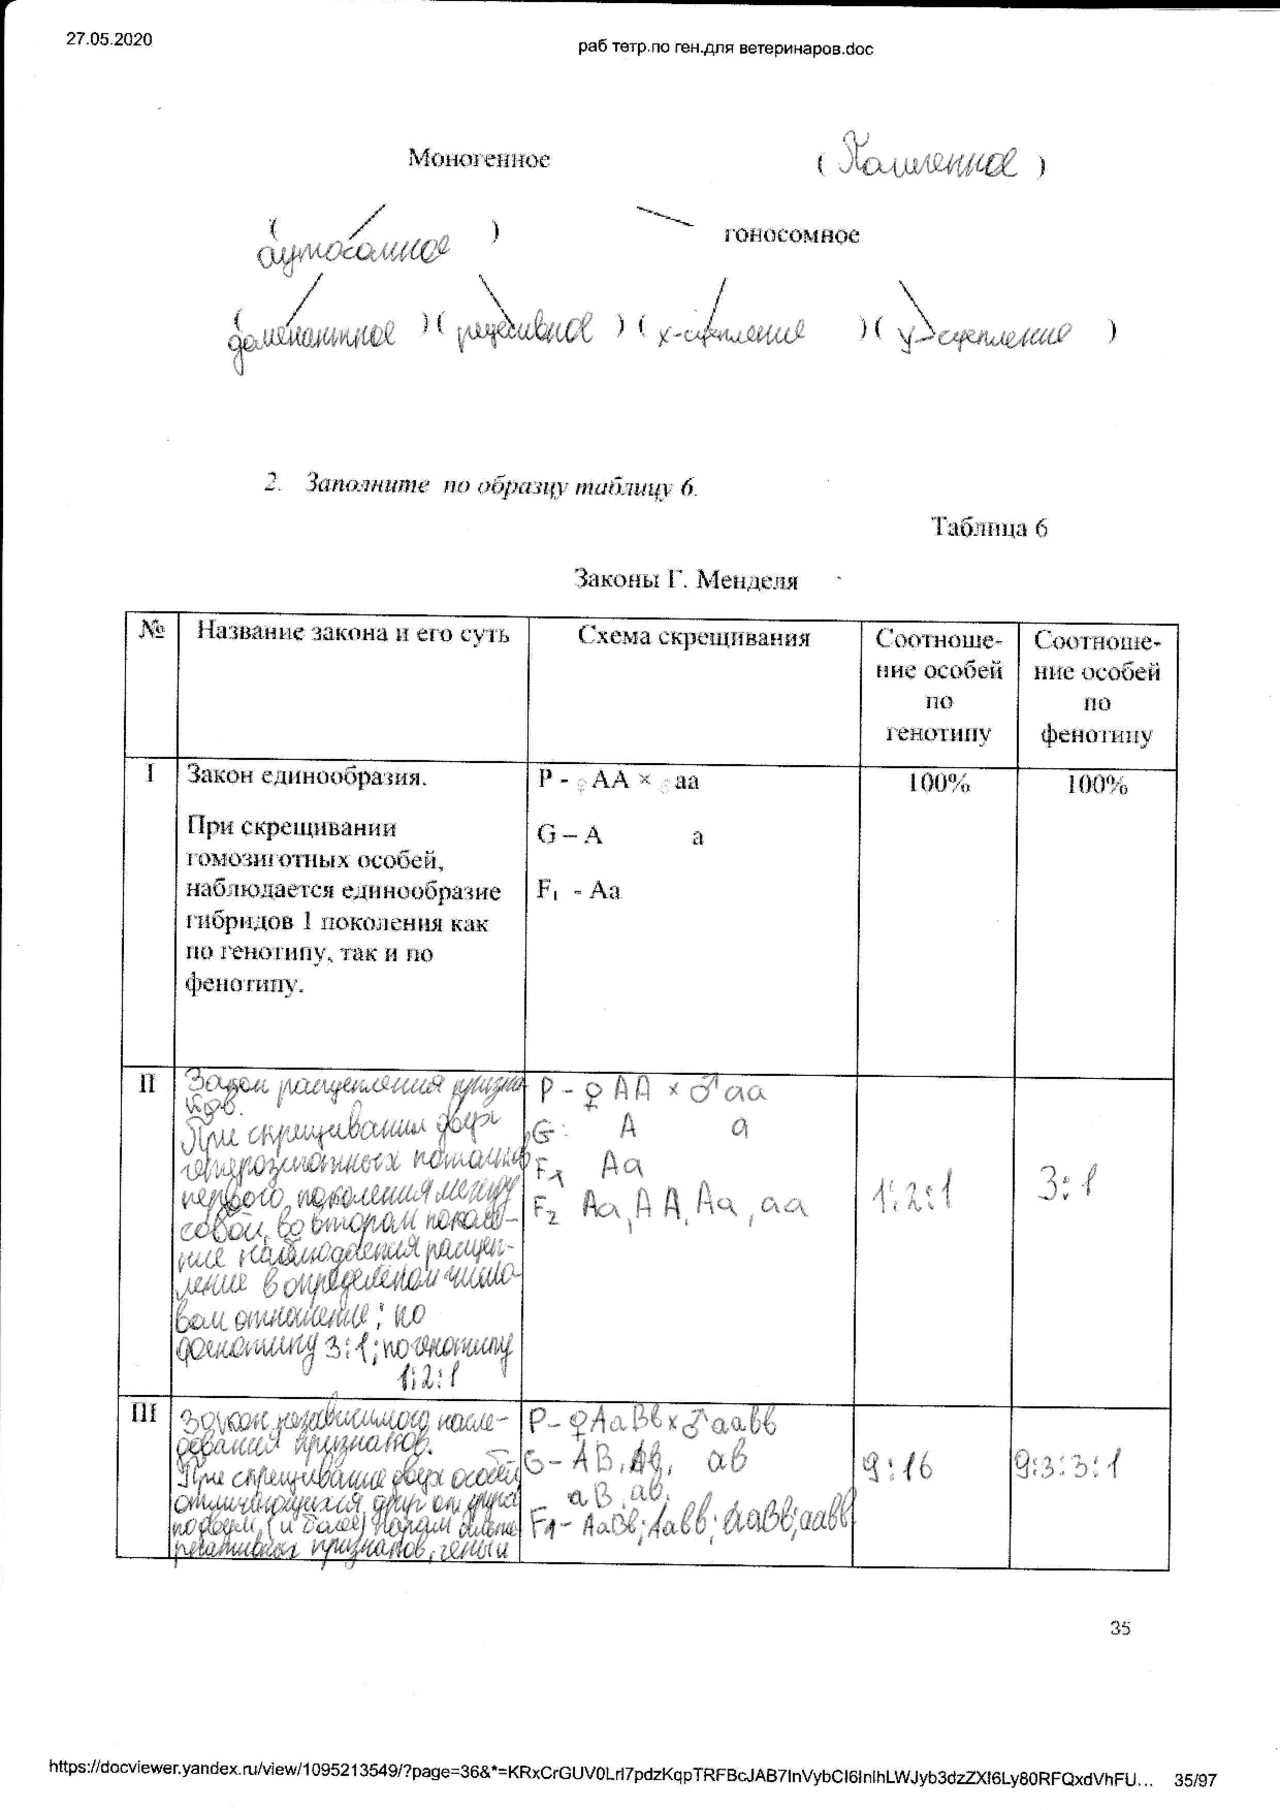 27.05.2020
раб тетр.по ген.для ветеринаров.doc
Моногенное
( Полигенное )
( аутосомное )
гоносомное
( доменантное ) ( рецесивное ) ( х-сцепление ) ( у-сцепление )
2. Заполните по образцу таблицу 6.
Таблица 6
Законы Г. Менделя
№
Название закона и его суть
Схема скрещивания
Соотноше-
ние особей
по
генотипу
Соотноше-
ние особей
по
фенотипу
I
Закон единообразия.
При скрещивании
гомозиготных особей,
наблюдается единообразие
гибридов 1 поколения как
по генотипу, так и по
фенотипу.
P - ♀ AA × ♂ aa
G – A a
F₁ - Aa
100%
100%
II
Закон расщепления призна-
ков.
При скрещивании двух
гетерозиготных потомков
первого поколения между
собой, во втором поколе-
ние наблюдается расщеп-
ление в определеном число-
вом отношение: по
фенотипу 3:1; по генотипу
1:2:1
P - ♀ AA × ♂ aa
G: A a
F₁ Aa
F₂ Aa, AA, Aa, aa
1:2:1
3:1
III
Закон независимого насле-
дования признаков.
При скрещивание двух особей
отличающихся друг от друга
по двум (и более) парам альте-
рнативных признаков, гены и
P - ♀ AaBb × ♂ aabb
G - AB, Ab, ab
aB, ab.
F₁ - AaBb; Aabb; aaBb; aabb
9:16
9:3:3:1
35
https://docviewer.yandex.ru/view/1095213549/?page=36&*=KRxCrGUV0LrI7pdzKqpTRFBcJAB7InVybCI6InlhLWJyb3dzZXI6Ly80RFQxdVhFU... 35/97